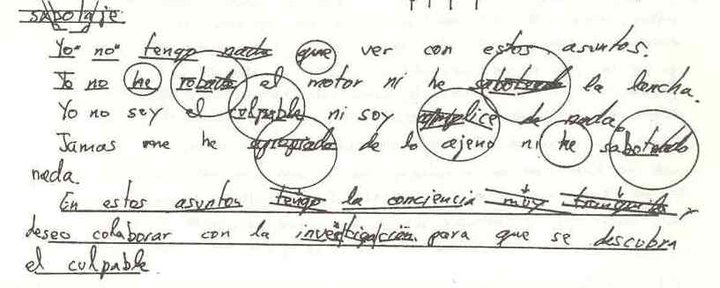 sabotaje
Yo no tengo nada que ver con estos asuntos.
Yo no he robado el motor ni he saboteado la lancha.
Yo no soy el culpable ni soy complice de nada.
Jamas me he apropiado de lo ajeno ni he saboteado
nada.
En estos asuntos tengo la conciencia muy tranquila y
deseo colaborar con la investigación para que se descubra
el culpable.